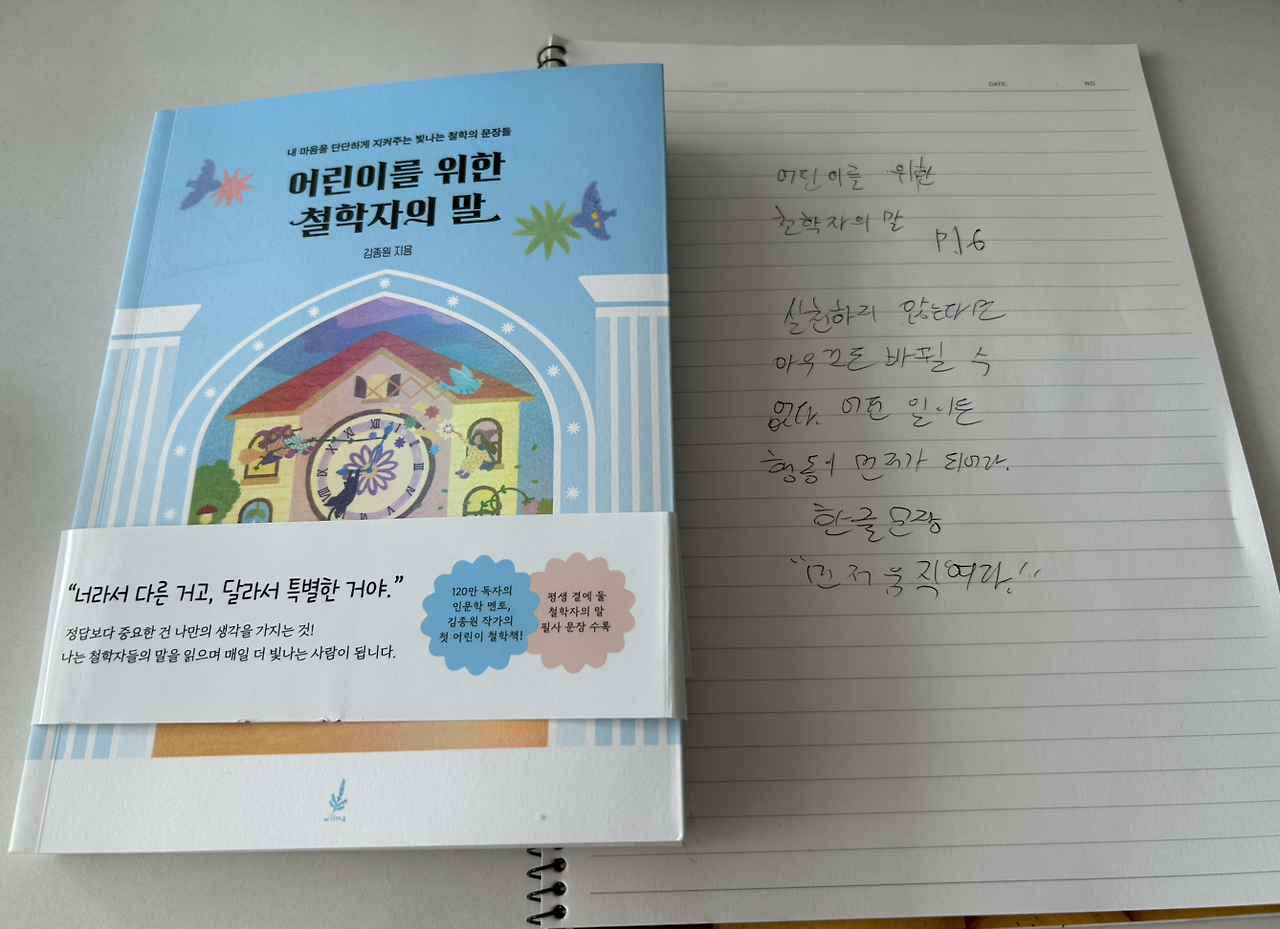 내 마음을 단단하게 지켜주는 빛나는 철학의 문장들
어린이를 위한
철학자의 말
김종원 지음
XII
I
II
III
IV
V
VII
VIII
IX
X
XI
"너라서 다른 거고, 달라서 특별한 거야."
정답보다 중요한 건 나만의 생각을 가지는 것!
나는 철학자들의 말을 읽으며 매일 더 빛나는 사람이 됩니다.
120만 독자의
인문학 멘토,
김종원 작가의
첫 어린이 철학책!
평생 곁에 둘
철학자의 말
필사 문장 수록
wilma
DATE. NO.
어린이를 위한
철학자의 말
P16
실천하지 않는다면
아무것도 바뀔 수
없다. 어떤 일이든
행동이 먼저가 되어라.
한글문장
"먼저 움직여라!"